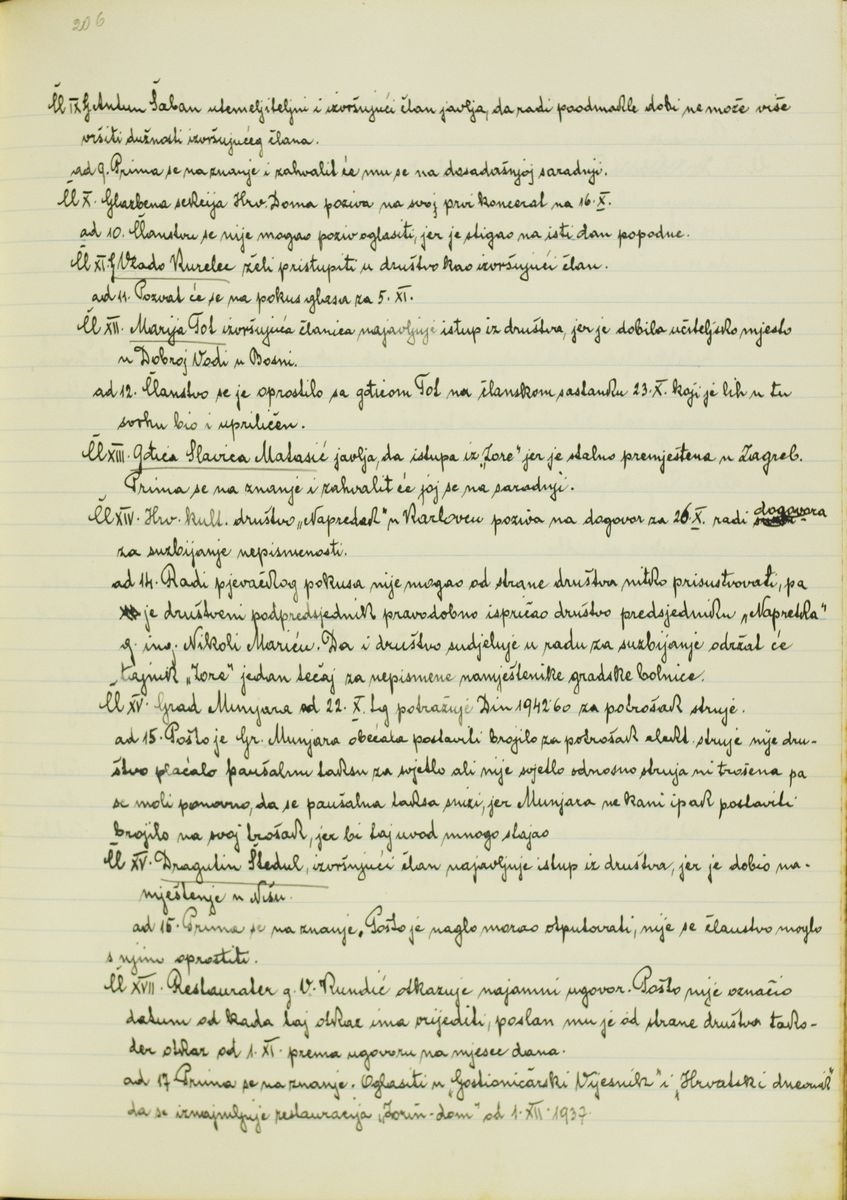 206
Čl IX G Antun Šaban utemeljiteljni i izvršujući član javlja, da radi poodmakle dobi ne može više
vršiti dužnosti izvršujućeg člana.
ad 9. Prima se na znanje i zahvalit će mu se na dosadašnjoj saradnji.
Čl X. Glazbena sekcija Hrv. Doma poziva na svoj prvi koncerat na 16. X.
ad 10. Članstvu se nije mogao poziv oglasiti, jer je stigao na isti dan popodne.
Čl XI. G Vlado Kurelec želi pristupiti u društvo kao izvršujući član.
ad 11. Pozvat će se na pokus glasa za 5. XI.
Čl XII. Marija Tot izvršujuća članica najavljuje istup iz društva, jer je dobila učiteljsko mjesto
u Dobroj Vodi u Bosni.
ad 12. Članstvo se je oprostilo sa gđicom Tot na članskom sastanku 23. X. koji je bih u tu
svrhu bio i upriličen.
Čl XIII. Gđica Slavica Matasić javlja, da istupa iz „Zore" jer je stalno premještena u Zagreb.
Prima se na znanje i zahvalit će joj se na saradnji.
Čl XIV. Hrv. kult. društvo „Napredak" u Karlovcu poziva na dogovor za 26. X. radi dogovora
za suzbijanje nepismenosti.
ad 14. Radi pjevačkog pokusa nije mogao od strane društva nitko prisustvovati, pa
je društveni podpredsjednik pravodobno ispričao društvo predsjedniku „Napretka"
g. ing. Nikoli Mariću. Da i društvo sudjeluje u radu za suzbijanje održat će
tajnik „Zore" jedan tečaj za nepismene namještenike gradske bolnice.
Čl XV. Grad Munjara od 22. X. tg potražuje Din 1942·60 za potrošak struje.
ad 15. Pošto je Gr. Munjara obećala postaviti brojilo za potrošak elekt. struje nije dru-
štvo plaćalo paušalnu taksu za svjetlo ali nije svjetlo odnosno struja ni trošena pa
se moli ponovno, da se paušalna taksa snizi, jer Munjara ne kani ipak postaviti
brojilo na svoj trošak, jer bi taj uvod mnogo stajao
Čl XV. Dragutin Štedul, izvršujući član najavljuje istup iz društva, jer je dobio na-
mještenje u Nišu.
ad 16. Prima se na znanje. Pošto je naglo morao otputovati, nije se članstvo moglo
s njim oprostiti.
Čl XVII. Restaurater g. V. Rundić otkazuje najamni ugovor. Pošto nije označio
datum od kada taj otkaz ima vrijediti, poslan mu je od strane društva tako-
đer otkaz od 1. XI. prema ugovoru na mjesec dana.
ad 17 Prima se na znanje. Oglasiti u „Gostioničarski Vijesnik" i „Hrvatski dnevnik"
da se iznajmljuje restauracija „Zorin-dom" od 1. XII. 1937.